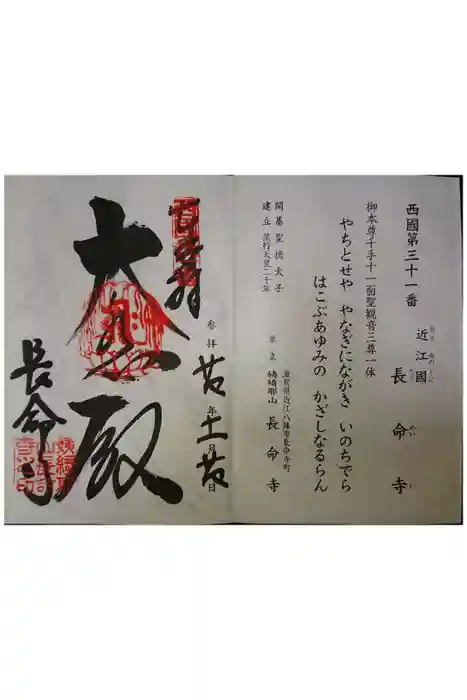 西國第三十一番
近江國 長命寺
おうみのくに ちょうめいじ
御本尊千手十一面聖観音三尊一体
やちとせや やなぎにながき いのちでら
はこぶあゆみの かざしなるらん
開基 聖徳太子
建立 景行天皇二十年
滋賀県近江八幡市長命寺町
単立 姨綺耶山 長命寺
奉拝
参拝 年 月 日
大悲殿
長命寺